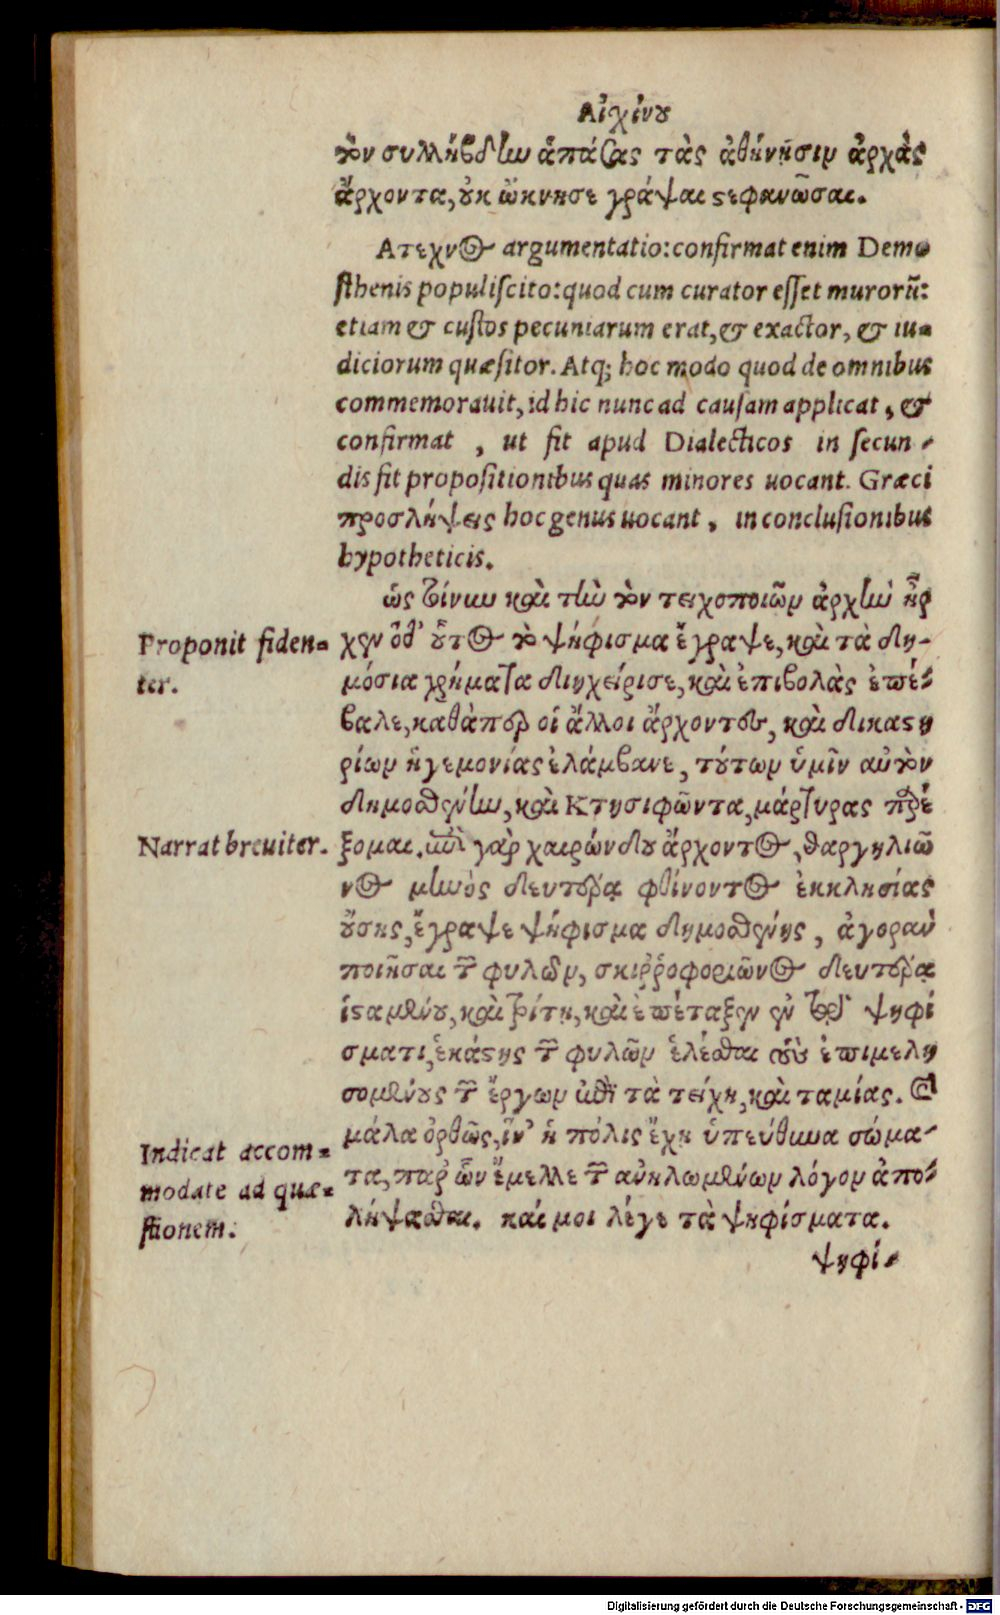 Αἰχίνου
τὸν συλλήβδην ἁπάσας τὰς ἀθήνῃσιν ἀρχὰς
ἄρχοντα, οὐκ ὤκνησε γράψαι στεφανῶσαι.
Ατεχνος argumentatio: confirmat enim Demo-
sthenis populiscito: quod cum curator esset murorū:
etiam & custos pecuniarum erat, & exactor, & iu-
diciorum quæsitor. Atq; hoc modo quod de omnibus
commemorauit, id hic nunc ad causam applicat, &
confirmat, ut fit apud Dialecticos in secun-
dis fit propositionibus quas minores uocant. Græci
προσλήψεις hoc genus uocant, in conclusionibus
hypotheticis.
ὡς τοίνυν καὶ τὴν τὸν τειχοποιῶν ἀρχὴν ἦρ
Proponit fiden-
ter.
χεν ὅθ' οὗτος τὸ ψήφισμα ἔγραψε, καὶ τὰ δη-
μόσια χρήματα διηχείρισε, καὶ ἐπιβολὰς ἐπέ-
βαλε, καθάπερ οἱ ἄλλοι ἄρχοντες, καὶ δικαστη
ρίων ἡγεμονίας ἐλάμβανε, τούτων ὑμῖν αὐτὸν
δημοσθένην, καὶ Κτησιφῶντα, μάρτυρας παρέ
Narrat breuiter.
ξομαι. ἐπὶ γὰρ χαιρώνδου ἄρχοντος, θαργηλιῶ
νος μηνὸς δευτέρᾳ φθίνοντος ἐκκλησίας
οὔσης, ἔγραψε ψήφισμα δημοσθένης, ἀγορὰν
ποιῆσαι τῶν φυλῶν, σκιῤῥοφοριῶνος δευτέρᾳ
ἱσταμένου, καὶ τρίτῃ, καὶ ἐπέταξεν ἐν τῷ ψηφί
σματι, ἑκάστης τῶν φυλῶν ἑλέσθαι τοὺς ἐπιμελη
σομένους τῶν ἔργων ἐπὶ τὰ τείχη, καὶ ταμίας. καὶ
Indicat accom-
modate ad quæ-
stionem.
μάλα ὀρθῶς, ἵν' ἡ πόλις ἔχῃ ὑπεύθυνα σώμα-
τα, παρ' ὧν ἔμελλε τῶν ἀνηλωμένων λόγον ἀπο-
λήψεσθαι. καί μοι λέγε τὰ ψηφίσματα.
ψηφί-
Digitalisierung gefördert durch die Deutsche Forschungsgemeinschaft - DFG